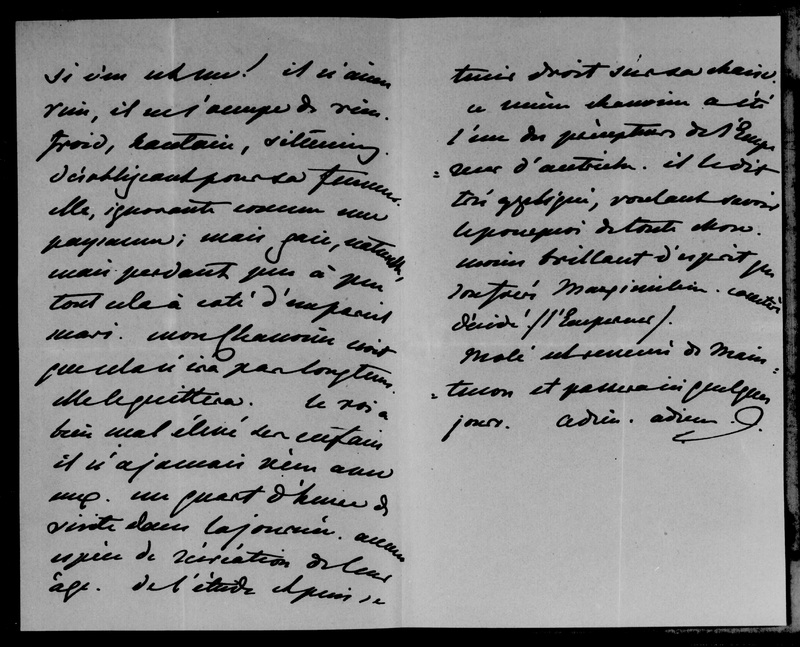 si c'en est une! il n'aime
rien, il ne s'occupe de rien.
froid, hautain, silencieux.
désobligeant pour sa femme.
elle, ignorante comme une
paysanne; mais gaie, naturelle,
mais perdant peu à peu
tout cela à coté d'un pareil
mari. mon chanoine croit
que cela n'ira pas longtems.
elle le quittera. le roi a
bien mal élevé ses enfans
il n'a jamais vécu avec
eux. un quart d'heure de
visite dans la journée. aucune
espèce de récréation de leur
âge. de l'étude et puis se
tenir droit sur sa chaise.
ce même chanoine a été
l'un des précepteurs de l'Empe
=reur d'autriche. il le dit
très appliqué, voulant savoir
le pourquoi de toute chose.
moins brillant d'esprit que
son frère Maximilien. caractère
décidé. (l'Empereur).
Molé est revenu de Main=
=tenon et passera ici quelques
jours. adieu. adieu.